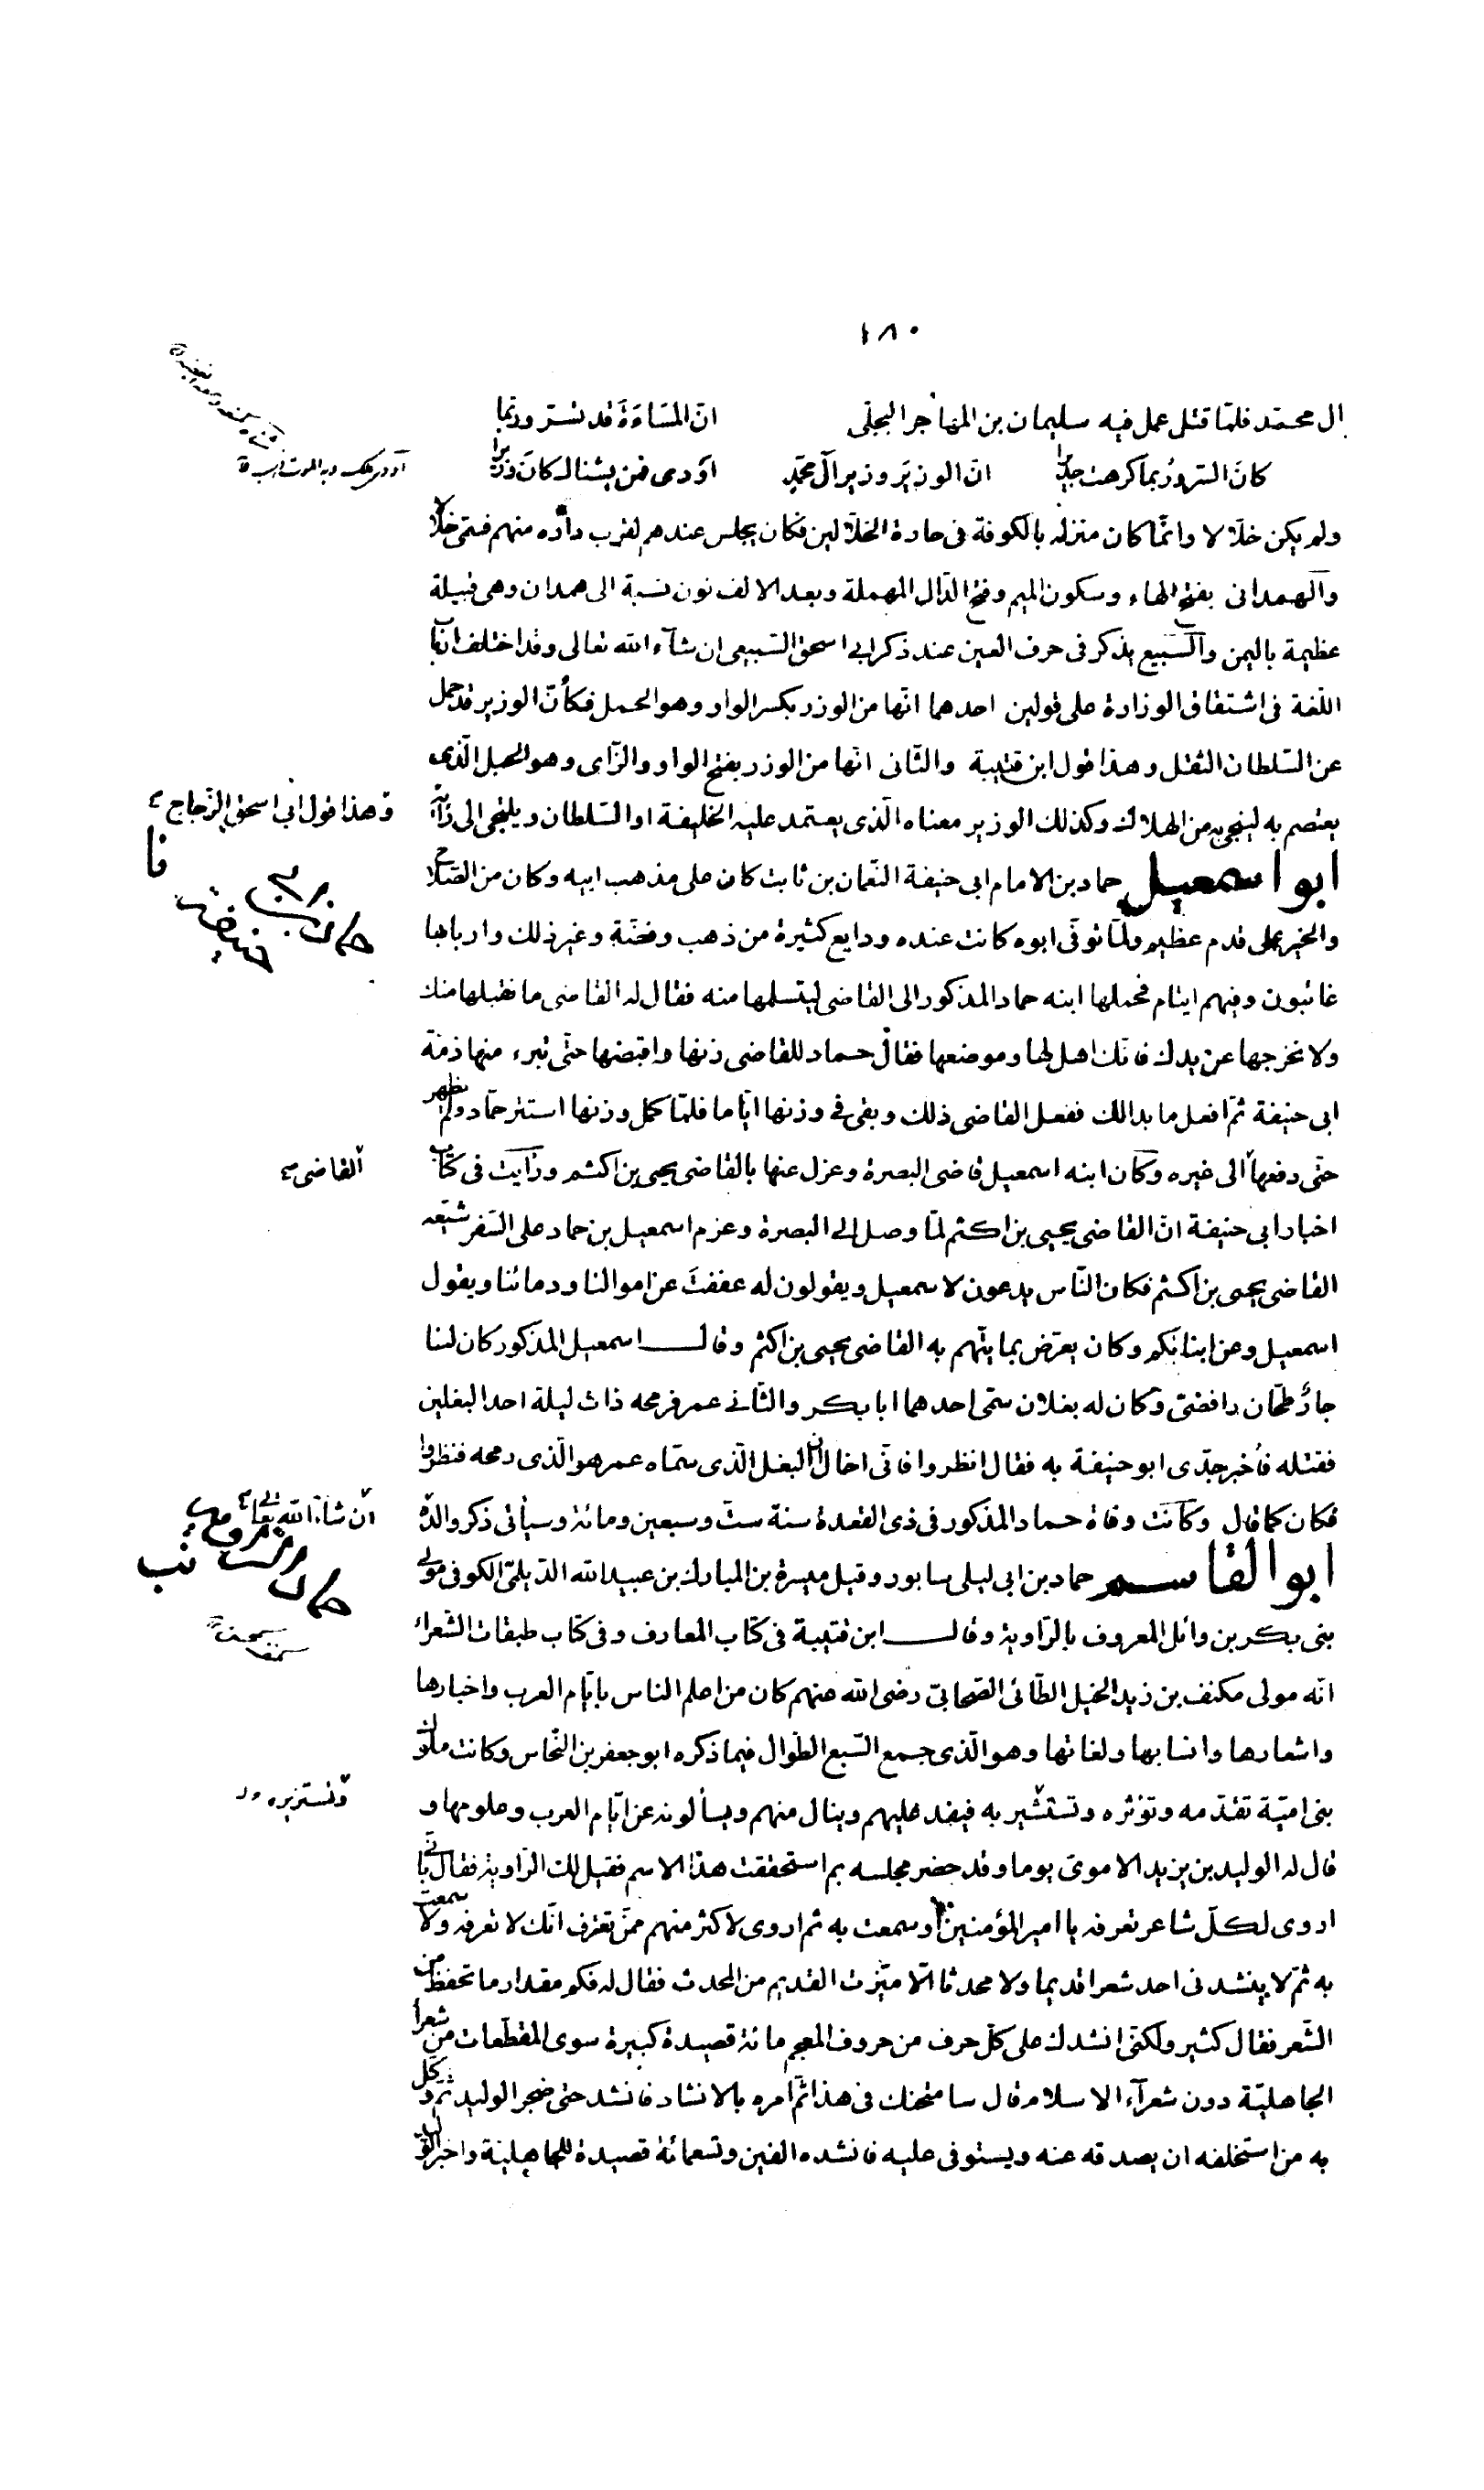 ١٨٠
ال محمّد فلمّا قتل عمل فيه سليمان بن المهاجر البجلّى انّ المسَاءَةَ قد تسّر وربّما
كانَ السّرورُ بما كرهت جديرا انّ الوزيَر وزير آل محمّدٍ اوَدى فمن يشناك كانَ وزيرا
ولم يكن خلّالا وانّما كان منزله بالكوفة فى حارة الخلّالين فكان يجلس عندهم لقرب داره منهم فسمّى خلّالا
والهمدانى بفتح الهاء وسكون الميم وفتح الدّال المهملة وبعد الالف نون نسبة الى همدان وهى قبيلة
عظيمة باليمن والسّبيع يذكر فى حرف العين عند ذكر ابى اسحق السّبيعى ان شآء الله تعالى وقد اختلف ارباب
اللّغة فى اشتقاق الوزارة على قولين احدهما انّها من الوزر بكسر الواو وهو الحمل فكأنّ الوزير قد حمل
عن السّلطان الثقل وهذا قول ابن قتيبة والثّانى انّها من الوزر بفتح الواو والزّاى وهو الجبل الّذى
يعتصم به لينجى به من الهلاك وكذلك الوزير معناه الّذى يعتمد عليه الخليفة او السّلطان ويلتجى الى رايه
وهذا قول ابى اسحق الزّجاج
ابو اسمعيل حماد بن الامام ابى حنيفة النّعمان بن ثابت كان على مذهب ابيه وكان من الصّلاح
والخير على قدم عظيم ولمّا توفّى ابوه كانت عنده ودايع كثيرة من ذهب وفضّة وغير ذلك واربابها
غائبون وفيهم ايتام فحملها ابنه حماد المذكور الى القاضى ليتسلمها منه فقال له القاضى ما نقبلها منك
ولا نخرجها عن يدك فانّك اهل لها وموضعها فقال حماد للقاضى زنها واقبضها حتّى تبرء منها ذمّة
ابى حنيفة ثمّ افعل ما بدا لك ففعل القاضى ذلك وبقى فى وزنها ايّاما فلمّا كمل وزنها استتر حمّاد ولم يظهر
حتّى دفعها الى غيره وكان ابنه اسمعيل قاضى البصرة وعزل عنها بالقاضى يحيى بن اكثم ورأيت فى كتاب
القاضى
اخبار ابى حنيفة انّ القاضى يحيى بن اكثم لمّا وصل الى البصرة وعزم اسمعيل بن حماد على السّفر شيّعه
القاضى يحيى بن اكثم فكان النّاس يدعون لاسمعيل ويقولون له عففتَ عن اموالنا ودمائنا ويقول
اسمعيل وعن ابنائكم وكان يعرّض بما يتّهم به القاضى يحيى بن اكثم وقال اسمعيل المذكور كان لنا
جارٌ طحّان رافضىّ وكان له بغلان سمّى احدهما ابا بكر والثّانى عمر فرمحه ذات ليلة احد البغلين
فقتله فأخبر جدّى ابو حنيفة به فقال انظروا فانّى اخال ان البغل الّذى سمّاه عمر هو الّذى رمحه فنظروا
فكان كما قال وكانت وفاة حماد المذكور فى ذى القعدة سنة ستّ وسبعين ومائة وسيأتى ذكر والده
ان شاء الله تعالى
ابو القاسم حماد بن ابى ليلى سابور وقيل ميسرة بن المبارك بن عبيد الله الدّيلمىّ الكوفى مولى
بنى بكر بن وائل المعروف بالرّاوية وقال ابن قتيبة فى كتاب المعارف وفى كتاب طبقات الشّعراء
انّه مولى مكنف بن زيد الخيل الطّائى الصّحابىّ رضى الله عنهم كان من اعلم الناس بايّام العرب واخبارها
واشعارها وانسابها ولغاتها وهو الّذى جمع السّبع الطّوال فيما ذكره ابو جعفر بن النّحاس وكانت ملوك
بنى اميّة تقدّمه وتؤثره وتستشير به فيفد عليهم وينال منهم ويسألونه عن ايّام العرب وعلومها و
وتستزيره
قال له الوليد بن يزيد الاموىّ يوما وقد حضر مجلسه بم استحققت هذا الاسم فقيل لك الرّاوية فقال بانّى
اروى لكلّ شاعر تعرفه يا امير المؤمنين او سمعت به ثم اروى لاكثر منهم ممّن تعترف انّك لا تعرفه ولا سمعت
به ثمّ لا ينشدنى احد شعرا قديما ولا محدثا الّا ميّزت القديم من المحدث فقال له فكم مقدار ما تحفظ من
الشّعر فقال كثير ولكنّى انشدك على كلّ حرف من حروف المعجم مائة قصيدة كبيرة سوى المقطّعات من شعرا
الجاهليّة دون شعرآء الاسلام قال سامتحنك فى هذا ثمّ امره بالانشاد فانشد حتى ضجر الوليد ثمّ وكّل
به من استخلفه ان يصدقه عنه ويستوفى عليه فانشده الفين وتسعمائة قصيدة للجاهلية واخبر الوليد